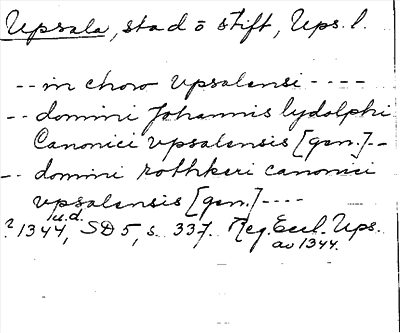 Upsala, stad o stift, Ups. l.
-- in choro vpsalensi ----
-- domini Johannis lydolphi
Canonici vpsalensis [gen.] --
-- domini rothkeri canonici
vpsalensis [gen.] ----
? 1344, u.d. SD 5, s. 337. Reg. Eccl. Ups.
av 1344.